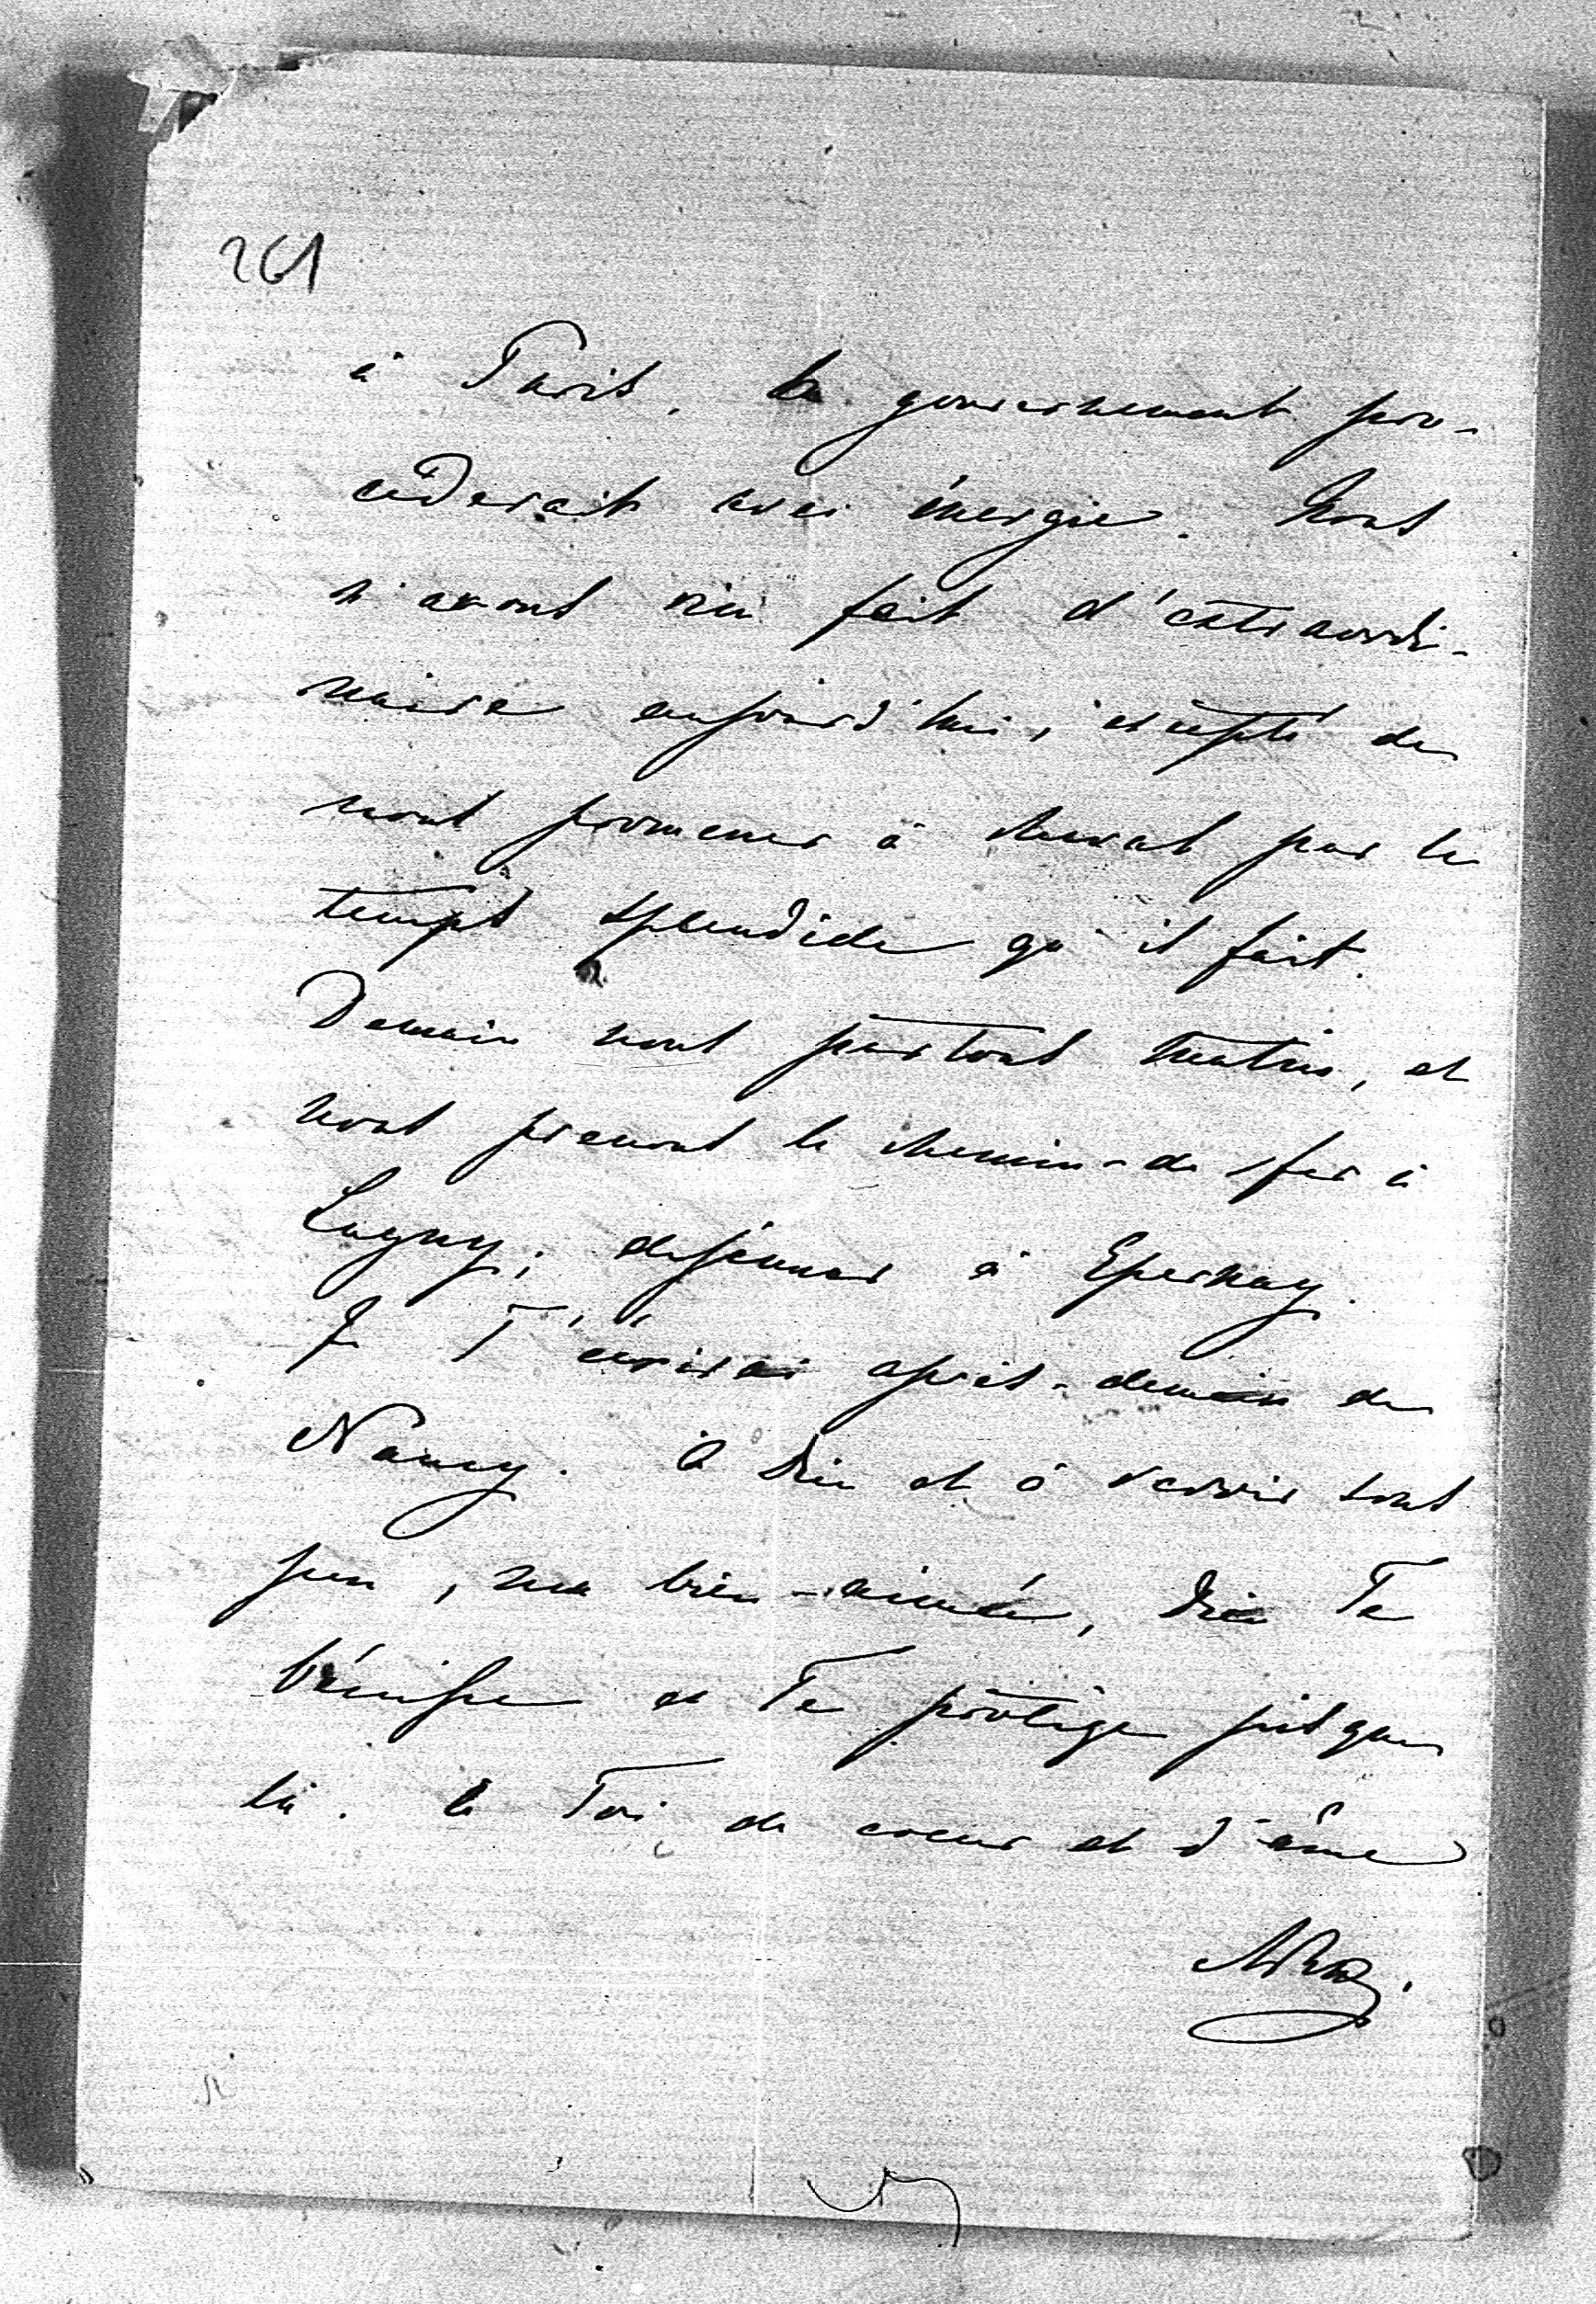 261
à Paris. Le gouvernement pro-
céderait avec énergie. Nous
n'avons rien fait d'extraordi-
naire aujourd'hui, excepté de
nous promener à cheval par le
temps splendide qu'il fait.
Demain nous partons matin, et
nous prenons le chemin-de fer à
Lagny; déjeuner à Epernay.
Je T'écrirai après-demain de
Nancy. A Dieu et à revoir sous
peu, ma bien-aimée, Dieu Te
bénisse et Te protège jusque
là. à Toi de coeur et d'âme